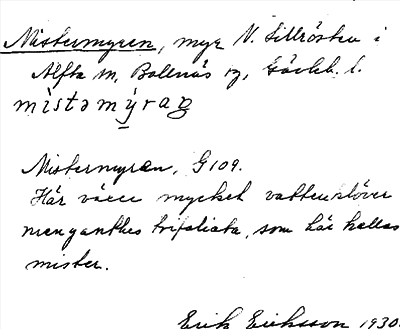 Mistermyren, myr N. Lillrösten i
Alfta sn, Bollnäs tg, Gävleb. l.
mìstəmỳ̱raꞑ
Mistermyren, G 109.
Här växer mycket vattenklöver
menyanthes trifoliata, som här kallas
mister.
Erik Eriksson 1930.